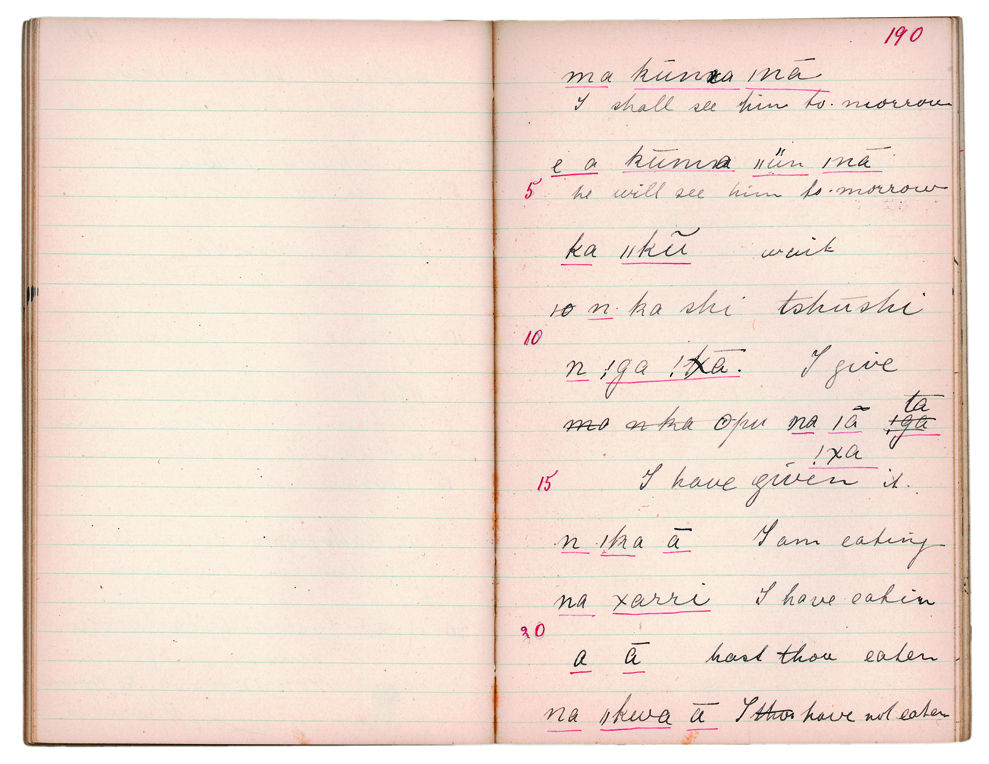 190
ma kūnxa ınā
I shall see him to-morrow
e a kūnna ıı̈ün ınā
5 he will see him to-morrow
ka ııkū̃ wait
ıo n ka shi tshushi
10
n !ga !xā. I give
tā
ma n ka opu na ıā̃ !gā
!xa
15 I have given it.
n !ka ā I am eating
na xarri I have eatin
20
a ā hast thou eaten
na ıılkwa ā I thou have not eaten